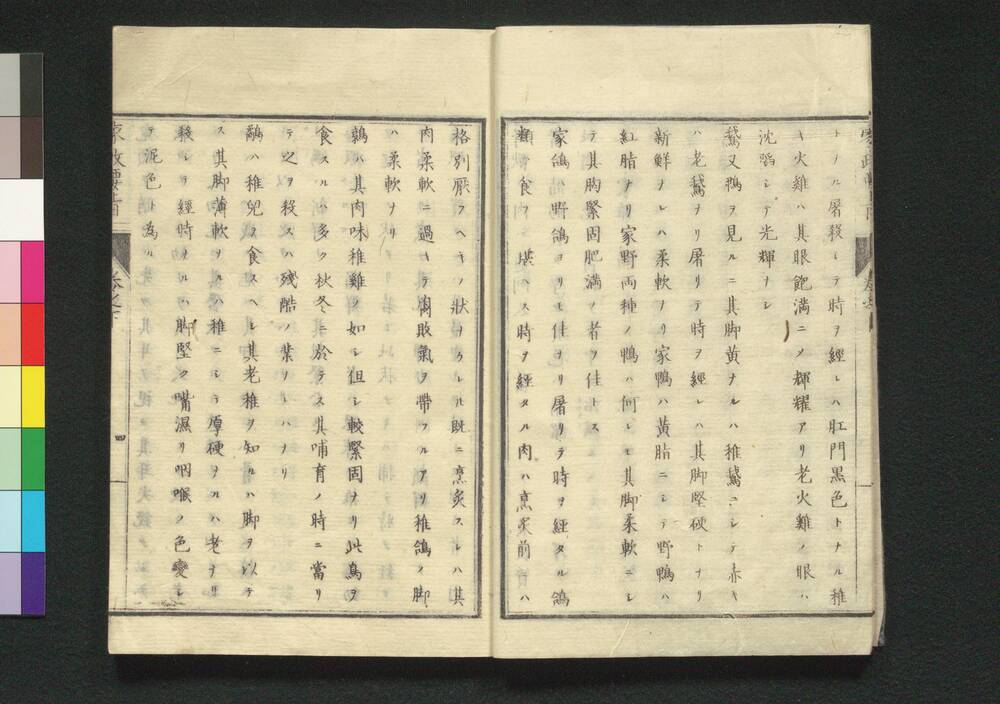 トナル屠殺シテ時ヲ經レハ肛門黒色トナル稚
キ火雞ハ其眼飽満ニメ輝耀アリ老火雞ノ眼ハ
沈陷シテ光輝ナシ
鵞又鴨ヲ見ルニ其脚黄ナルハ稚鵞ニシテ赤キ
ハ老鵞ナリ屠リテ時ヲ經レハ其脚堅硬トナリ
新鮮ナレハ柔軟ナリ家鴨ハ黄脂ニシテ野鴨ハ
紅脂ナリ家野両種ノ鴨ハ何レモ其脚柔軟ニシ
テ其胸緊固肥満ノ者ヲ佳トス
家鴿野鴿ヨリモ佳ナリ屠リテ時ヲ經タル鴿
食フニ堪ヘス時ヲ經タル肉ハ烹炙前旨ハ
格別厭フヘキノ狀ナクレル既ニ烹炙スレハ其
肉柔軟ニ過キテ腐敗氣ヲ帶フルアリ稚鴿ノ脚
ハ柔軟ナリ
鶉ハ其肉味稚雞ノ如シ但シ較緊固ナリ此鳥ヲ
食スルハ多ク秋冬ニ於テス其哺育ノ時ニ當リ
テ之ヲ殺スハ残酷ノ業リトハナリ
鷸ハ稚兒ヲ食スヘシ其老稚ヲ知ルハ脚ヲ以テ
ス其脚薄軟ナルハ稚ニシテ厚硬ナルハ老ナリ
殺シテ經時ナルハ脚堅ク嘴濕リ咽喉ノ色變シ
テ泥色ト為ル
家政要旨
巻之下
四